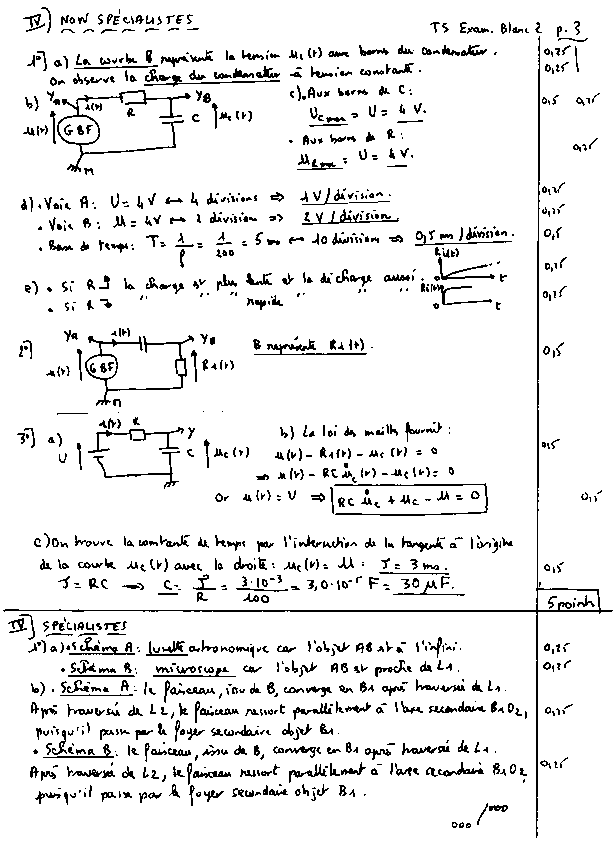 IV) NON SPÉCIALISTES
TS Exam. Blanc 2 p. 3
1°) a) La courbe B représente la tension uc(t) aux bornes du condensateur. 0,25
On observe la charge du condensateur à tension constante. 0,25
b) YA i(t) R YB C uc(t) u(t) GBF M
c) . Aux bornes de C : 0,5 0,25
Uc max = U = 4 V.
. Aux bornes de R :
uR max = U = 4 V. 0,25
d) . Voie A : U = 4V ↔ 4 divisions ⇒ 1 V/division. 0,25
. Voie B : U = 4V ↔ 2 division ⇒ 2 V/division 0,25
. Base de temps : T = 1/f = 1/200 = 5 ms ↔ 10 divisions ⇒ 0,5 ms/division. 0,5
e) . Si R ↗ la charge est plus lente et la décharge aussi. Ri(t) t 0,25
. Si R ↘ " " " " rapide " " " " Ri(t) t 0,25
2°) YA i(t) YB u(t) GBF Ri(t) M
B représente Ri(t). 0,5
3°) a) i(t) R Y U C uc(t)
b) La loi des mailles fournit :
u(t) - Ri(t) - uc(t) = 0 0,5
⇒ u(t) - RC u̇c(t) - uc(t) = 0
Or u(t) = U ⇒ RC u̇c + uc - U = 0 0,5
c) On trouve la constante de temps par l'intersection de la tangente à l'origine
de la courbe uc(t) avec la droite : uc(t) = U : τ = 3 ms. 0,5
τ = RC ⇒ C = τ/R = 3·10-3/100 = 3,0·10-5 F = 30 µF.
5 points
IV) SPÉCIALISTES
1°) a) . Schéma A : lunette astronomique car l'objet AB est à l'infini. 0,25
. Schéma B : microscope car l'objet AB est proche de L1. 0,25
b) . Schéma A : le faisceau, issu de B, converge en B1 après traversée de L1.
Après traversée de L2, le faisceau ressort parallèlement à l'axe secondaire B1O2, 0,25
puisqu'il passe par le foyer secondaire objet B1.
. Schéma B : le faisceau, issu de B, converge en B1 après traversée de L1.
Après traversée de L2, le faisceau ressort parallèlement à l'axe secondaire B1O2, 0,25
puisqu'il passe par le foyer secondaire objet B1.
ooo/ooo